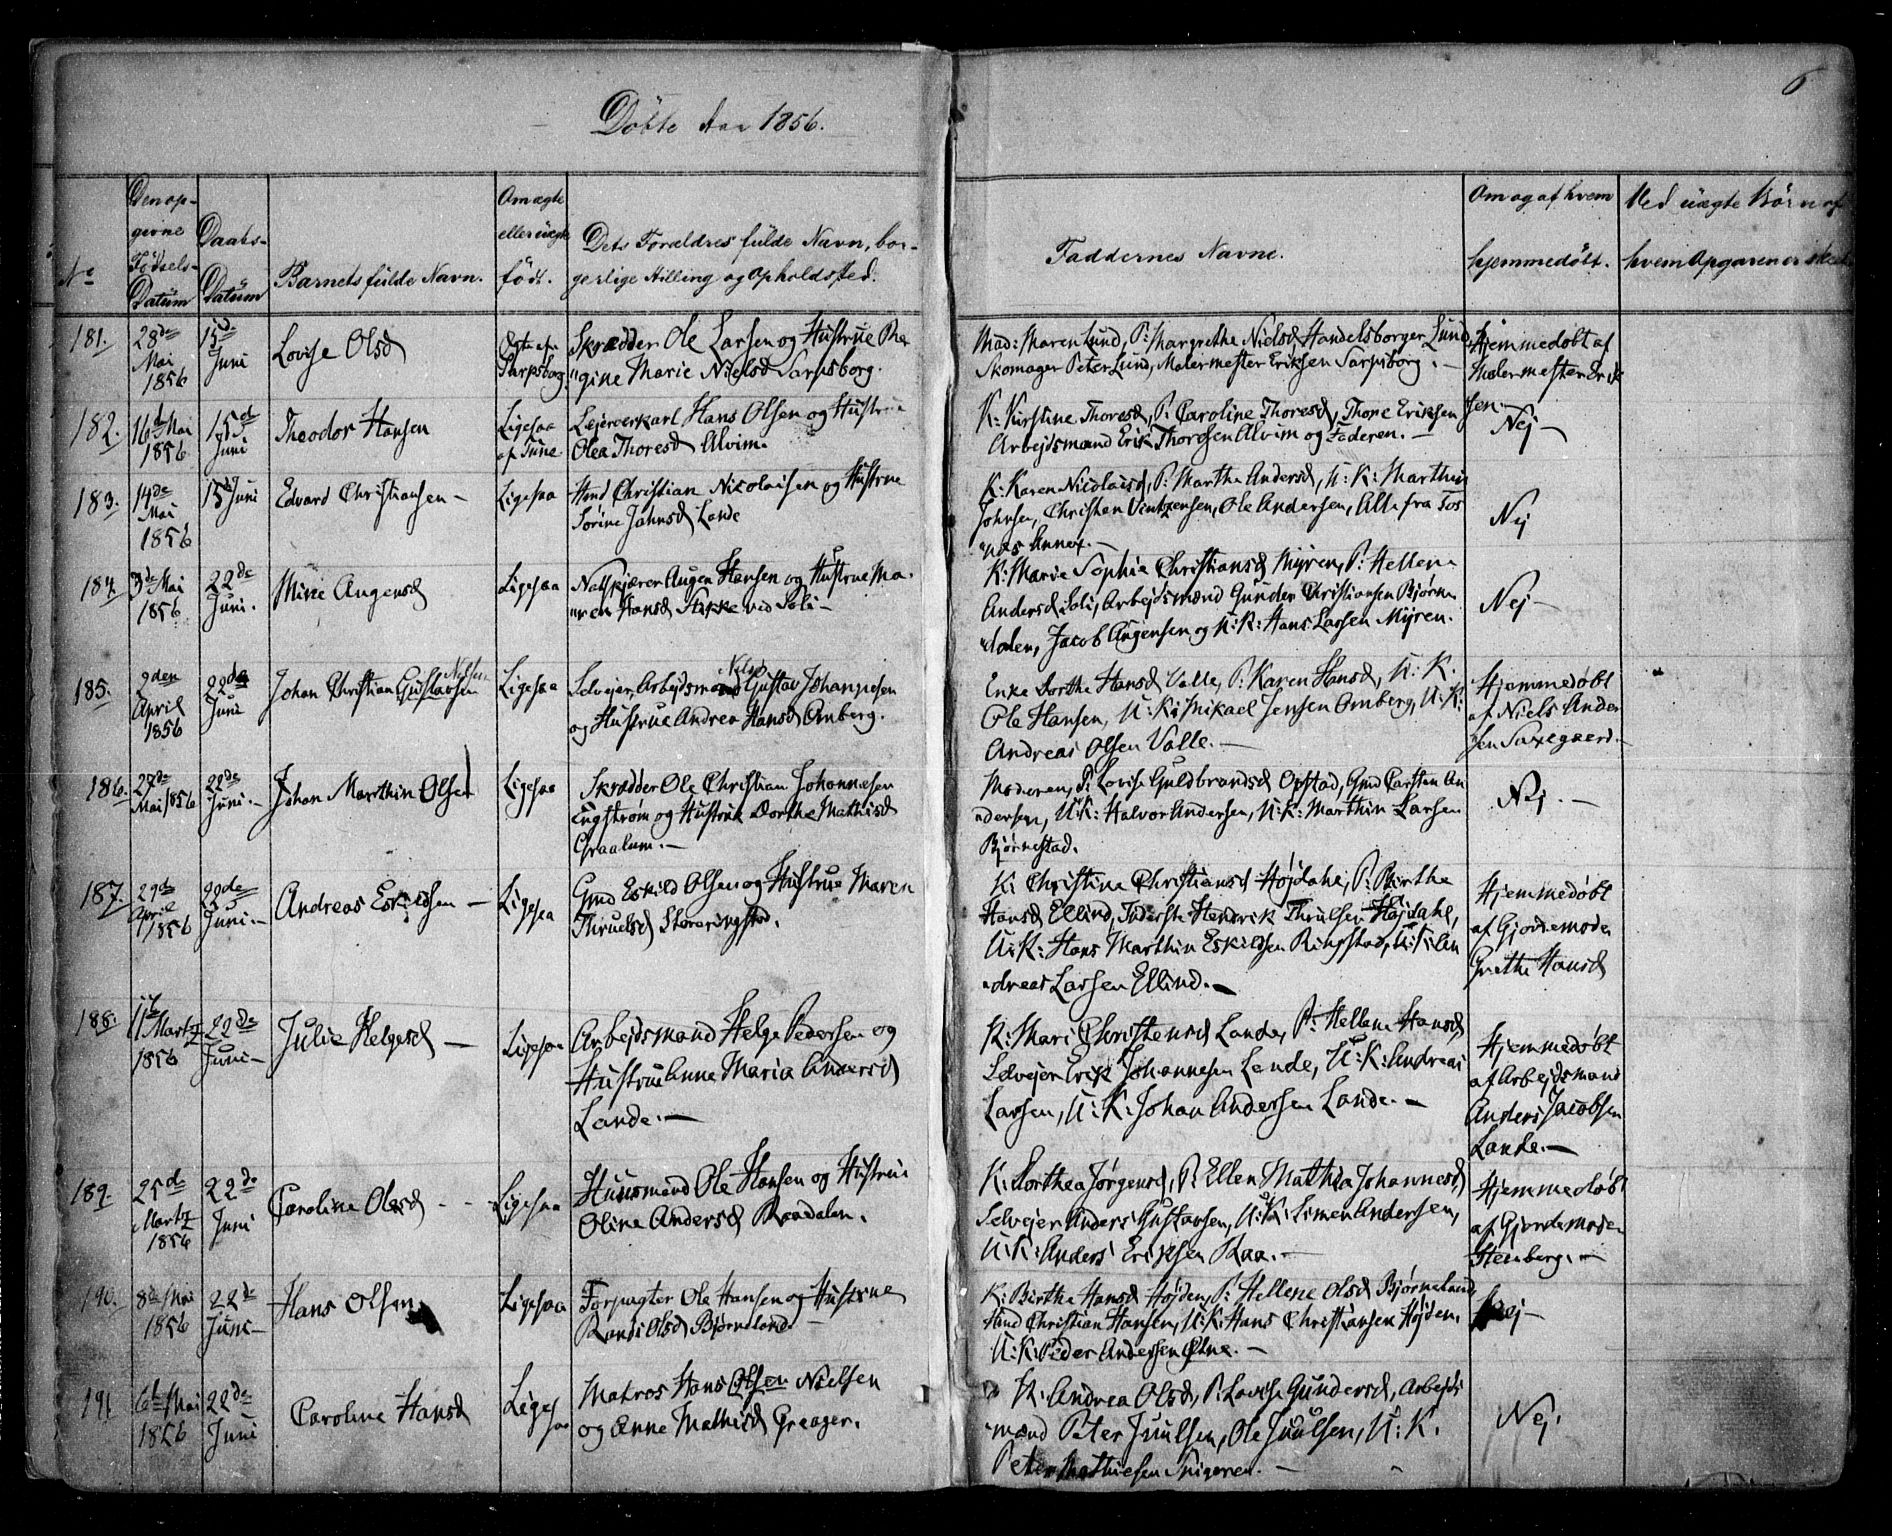 6
Döbte Aar 1856.
No
Den op-
givne
Födsels-
Datum
Daabs-
Datum
Barnets fulde Navn.
Om ægte
eller uægte
födt.
Dets Foraldres fulde Navn, bor-
gerlige Stilling og Opholdsted.
Faddernes Navne.
Om og af hvem
hjemmedöbt.
Ved uægte Börn af
hvem Opgaven er skeet
181.
28de
Mai
1856
15d.
Juni
Lovise Olsd
Ægte af
Sarpsborg
Skrædder Ole Larsen og Hustrue Re
"gine Marie Nielsd Sarpsborg.
Mad: Maren Lund, P: Margrethe Nielsd, Handelsborger Lund,
Skomager Peter Lund, Malermester Eriksen Sarpsborg. –
Hjemmedøbt af
Malermester Erik
sen
182.
16d Mai
1856
15d
Juni
Theodor Hansen
Ligesaa
af Tune
Lejerkarl Hans Olsen og Hustrue
Olea Thoresd Alvim.
K: Kirstine Thoresd, P: Caroline Thoresd, Thore Eriksen
Arbejdsmænd Erik Thoresen Alvim og Faderen. –
Nej –
183.
14de
Mai
1856
15d Juni
Edvard Christiansen –
Ligesaa
Hmd Christian Nikolaisen og Hustrue
Sørine Jahnsd Lande
K: Karen Nicolaisd, P: Marthe Andersd, U: K: Marthin
Johnsen, Christen Vintzensen, Ole Andersen, Alle fra Tos
"næs Annex. –
Nej
184.
3de Mai
1856
22de
Juni.
Mine Augensd
Ligesaa
Augen Hansen og Hustrue Ma-
"ren Hansd Stikke ved Soli –
K: Marie Sophie Christiansd Myren, P: Hellene
Andersd Soli, Arbejdsmænd Gunder Christiansen Bjørne
"dalen, Jacob Augensen og U: K: Hans Larsen Myren.
Nej –
185.
2den
April
1856
22de
Juni
Nelsen
Johan Christian Gustavsen
Ligesaa
Nelsen
Selvejer, Arbejdsmand Gustav Johannesen
og Hustrue Andrea Hansd Omberg.
Enke Dorthe Hansd Valle, P: Karen Hansd, U: K:
Ole Hansen, U: K: Mikael Jensen Omberg, U: K:
Andreas Olsen Valle. –
Hjemmedøbt
af Niels Ander
sen Saxegaard. –
186.
27de
Mai 1856
22de
Juni. –
Johan Marthin Olsen
Ligesaa
Skrædder Ole Christian Johannesen
Engstrøm og Hustrue Dorthe Mathisd
Graalum. –
Moderen, P: Lovise Guldbrandsd Opstad, Gmd Carsten An
"dersen, U: K: Halvor Andersen, U: K: Marthin Larsen
Bjørnestad.
Nej. –
187.
29de
April
1856
22de
Juni. –
Andreas Eskildsen –
Ligesaa
Gmd Eskild Olsen og Hustrue Maren
Thruelsd Storeringstad.
K: Christine Christiansd Højdahl, P: Birthe
Hansd Ellind, Inderste Hendrik Thrulsen Højdahl,
U: K: Hans Marthin Eskildsen Ringstad, U: K: An
"dreas Larsen Ellind. –
Hjemmedøbt
af Gjordemoder
Grethe Hansd
188.
17de
Martz
1856
22de
Juni –
Julie Helgesd –
Ligesaa
Arbejdsmand Helge Pedersen og
Hustrue Anne Maria Andersd
Lande. –
K: Mari Christensd Lande, P: Hellene Hansd,
Selvejer Erik Johannesen Lande, U: K: Andreas
Larsen, U: K: Johan Andersen Lande. –
Hjemmedøbt
af Arbejdsmand
Anders Jacobsen
Lande. –
189.
25de
Martz
1856
22de
Juni
Caroline Olesd - -
Ligesaa
Huusmand Ole Hansen og Hustrue
Oline Andersd Raadalen.
K: Dorthea Jørgensd, P: Ellen Mathea Johannesd,
Selvejer Anders Gustavsen, U: K: Simen Andersen,
U: K: Anders Eriksen Raa. –
Hjemmedøbt
af Gjordemoder
Stenberg. –
190.
8de Mai
1856
22de
Juni –
Hans Olsen
Ligesaa
Forpagter Ole Hansen og Hustrue
Randi Olsd Bjørneland. –
K: Birthe Hansd Højden, P: Hellene Olsd Bjørneland,
Hmd Christian Hansen, U: K: Hans Christiansen Højden,
U: K: Peder Andersen –
Nej –
191
6te Mai
1856
22de
Juni
Caroline Hansd
Ligesaa
Matros Hans Olsen Nielsen
og Anne Mathisd Greager.
K: Andrea Olsd, P: Lovise Gundersd, Arbejds
"mænd Peter Juulsen, Ole Juulsen, U: K.
Peter Mathiesen Spigeren. –
Nej.